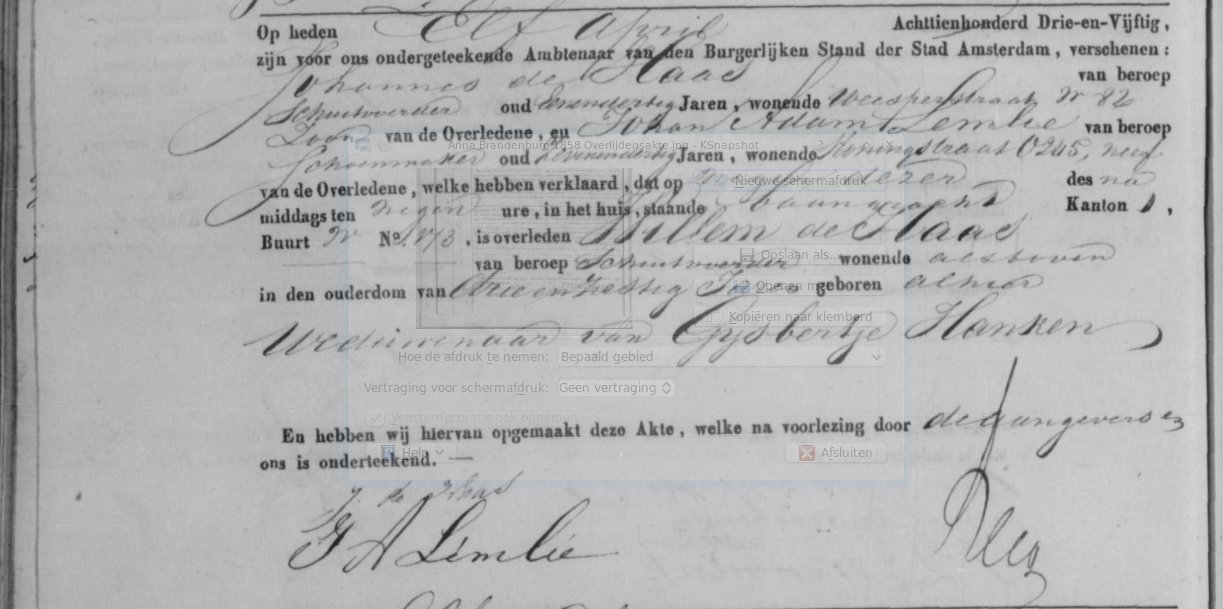 Op heden Elf April Achttienhonderd Drie-en-Vijftig,
zijn voor ons ondergeteekende Ambtenaar van den Burgerlijken Stand der Stad Amsterdam, verschenen:
Johannes de Haas van beroep
Schuitvoerder oud Jaren, wonende Weesperstraat N 82
Zoon van de Overledene, en Johan Adam Lemlie van beroep
Anna Brandenburg 1858 Overlijdensakte.jpg - KSnapshot
Schoenmaker oud Jaren, wonende Koningstraat 0245, neef
van de Overledene, welke hebben verklaard, dat op dezer des na
Nieuwe schermafdruk
middags ten negen ure, in het huis, staande Kanton 1,
Buurt N No. , is overleden Willem de Haas
Opslaan als...
van beroep Schuitvoerder wonende als boven
in den ouderdom van Drie en Zestig Jaren geboren alhier
Openen met
Kopiëren naar klembord
Weduwenaar van Gijsbertje Hanken
Hoe de afdruk te nemen: Bepaald gebied
Vertraging voor schermafdruk: Geen vertraging
Vensterdecoratie ook opnemen
En hebben wij hiervan opgemaakt deze Akte, welke na voorlezing door de aangevers en
Help Afsluiten
ons is onderteekend.
J. de Haas
J A Lemlie